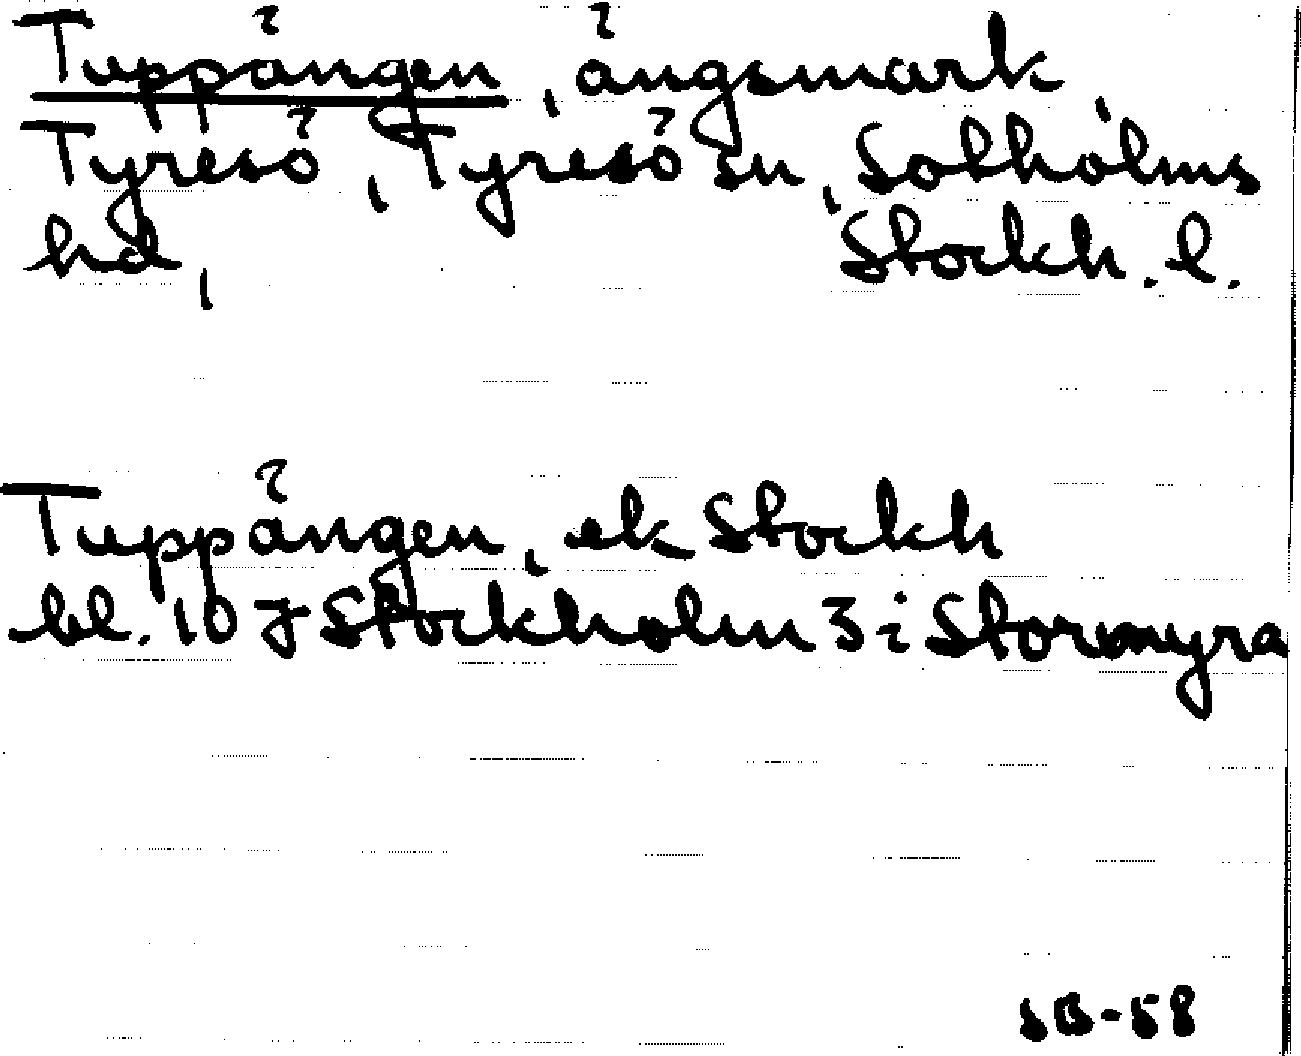 Tuppängen, ängsmark,
Tyresö, Tyresö sn, Sotholms
hd, Stockh. l.
Tuppängen, ek Stockh
bl. 10 J Stockholm 3 i Stormyra
SB-58